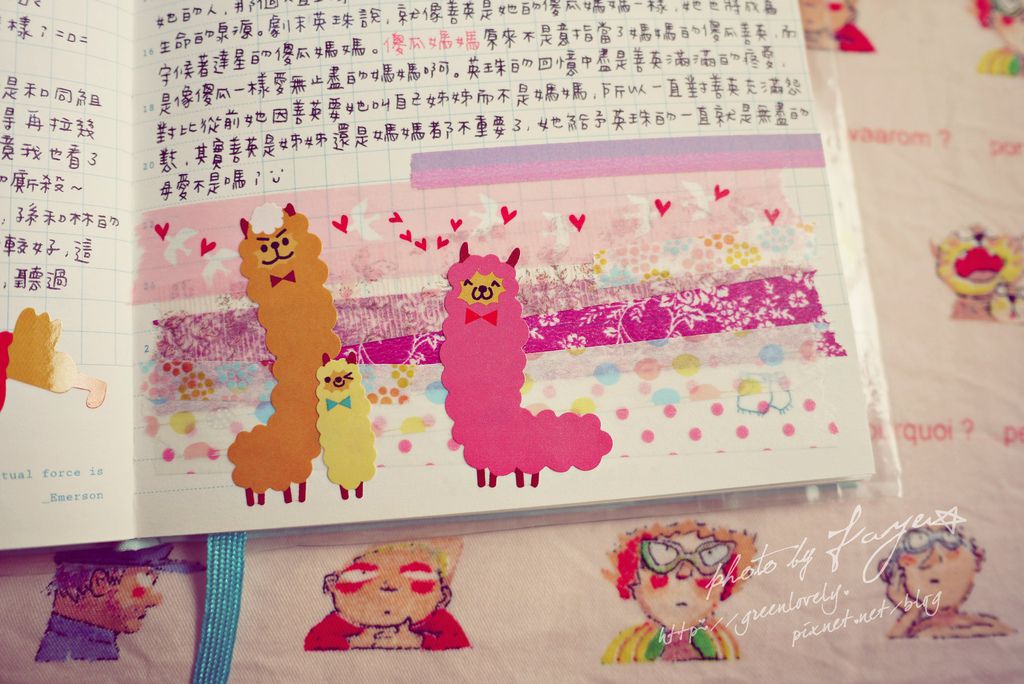 樣了=D=
是和同組
再拉幾
我也看了
的廝殺~
孫和林的
較好,這
聽過
生命的泉源。劇末英珠說,就像善英是她的傻瓜媽媽一樣,她也將成為
16 守候著達星的傻瓜媽媽。傻瓜媽媽原來不是意指當了媽媽的傻瓜善英,而
是像傻瓜一樣愛無止盡的媽媽啊。英珠的回憶中盡是善英滿滿的疼愛,
18 對比從前她因善英要她叫自己姊姊而不是媽媽,所以一直對善英充滿怨
懟,其實善英是姊姊還是媽媽都不重要了,她給予英珠的一直就是無盡的
20 母愛不是嗎?
22
2
tual force is
_Emerson
vaarom ?
por
urquoi ?
pe
photo by Faye
http://greenlovely.
pixnet.net/blog